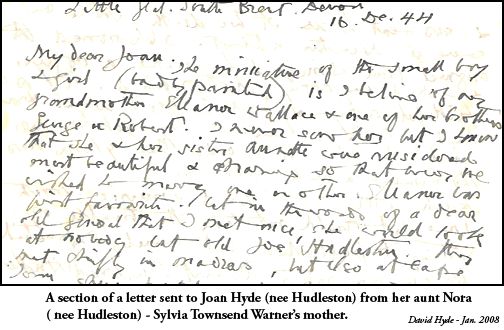 Little Zeal. South Brent. Devon
16. De. 44
My dear Joan. The miniature of the small boy
& girl (badly painted) is I believe of my
grandmother Eleanor Wallace & one of her brothers
George or Robert. I never saw her but I know
that she & her sister Annette were considered
most beautiful & charming so that everyone
wished to marry one or other. Eleanor was
most favourite. But in the words of a dear
old General that I met once, she would look
at nobody but old Joe Hudleston. They
met chiefly in Madras, but also at Cape
Town
A section of a letter sent to Joan Hyde (nee Hudleston) from her aunt Nora
( nee Hudleston) - Sylvia Townsend Warner's mother.
David Hyde - Jan. 2008